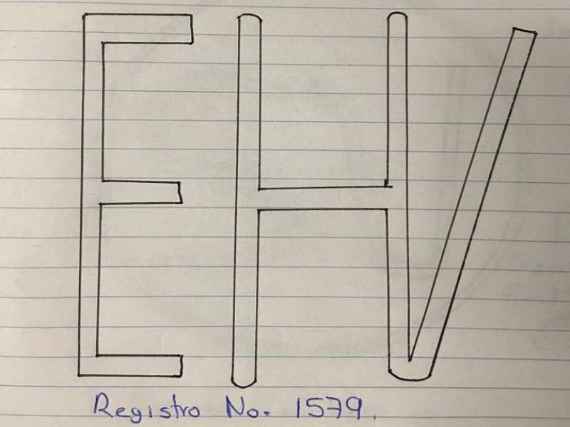 EHV
Registro No. 1579.